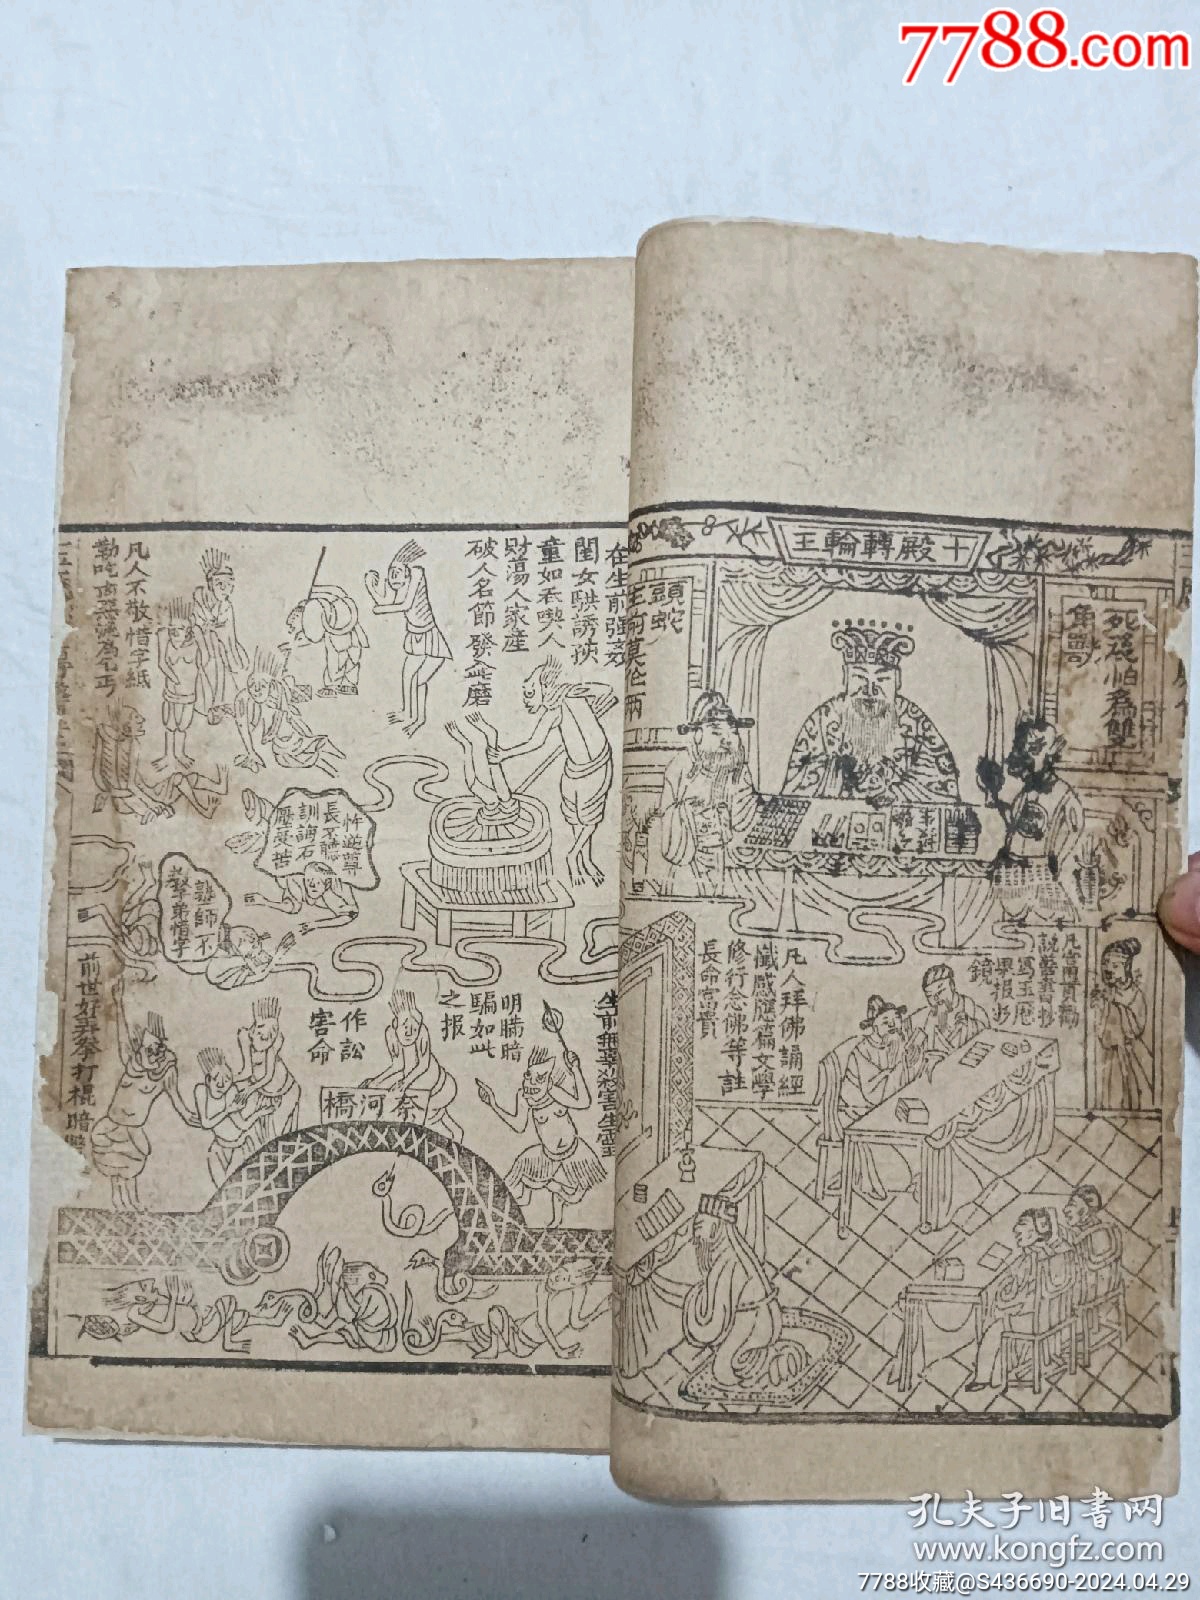 7788.com
十殿轉輪王
死後怕為雙
角獸
頭蛇
生前莫作兩
凡富貴勸
說善書抄
寫玉歷
果報抄
鏡
凡人拜佛誦經
懺感應篇文學
修行念佛等註
長命富貴
在生前強姦
閨女騙誘頑
童如吞喫人
財蕩人家產
破人名節發此磨
凡人不敬惜字紙
忤逆尊
長不聽
訓誨石
壓受苦
師不
教弟惜字
前世好弄拳打棍暗
生前無辜殺害生靈
明瞞暗
騙如此
之報
作訟
害命
奈河橋
孔夫子旧書网
www.kongfz.com
7788收藏@S436690-2024.04.29